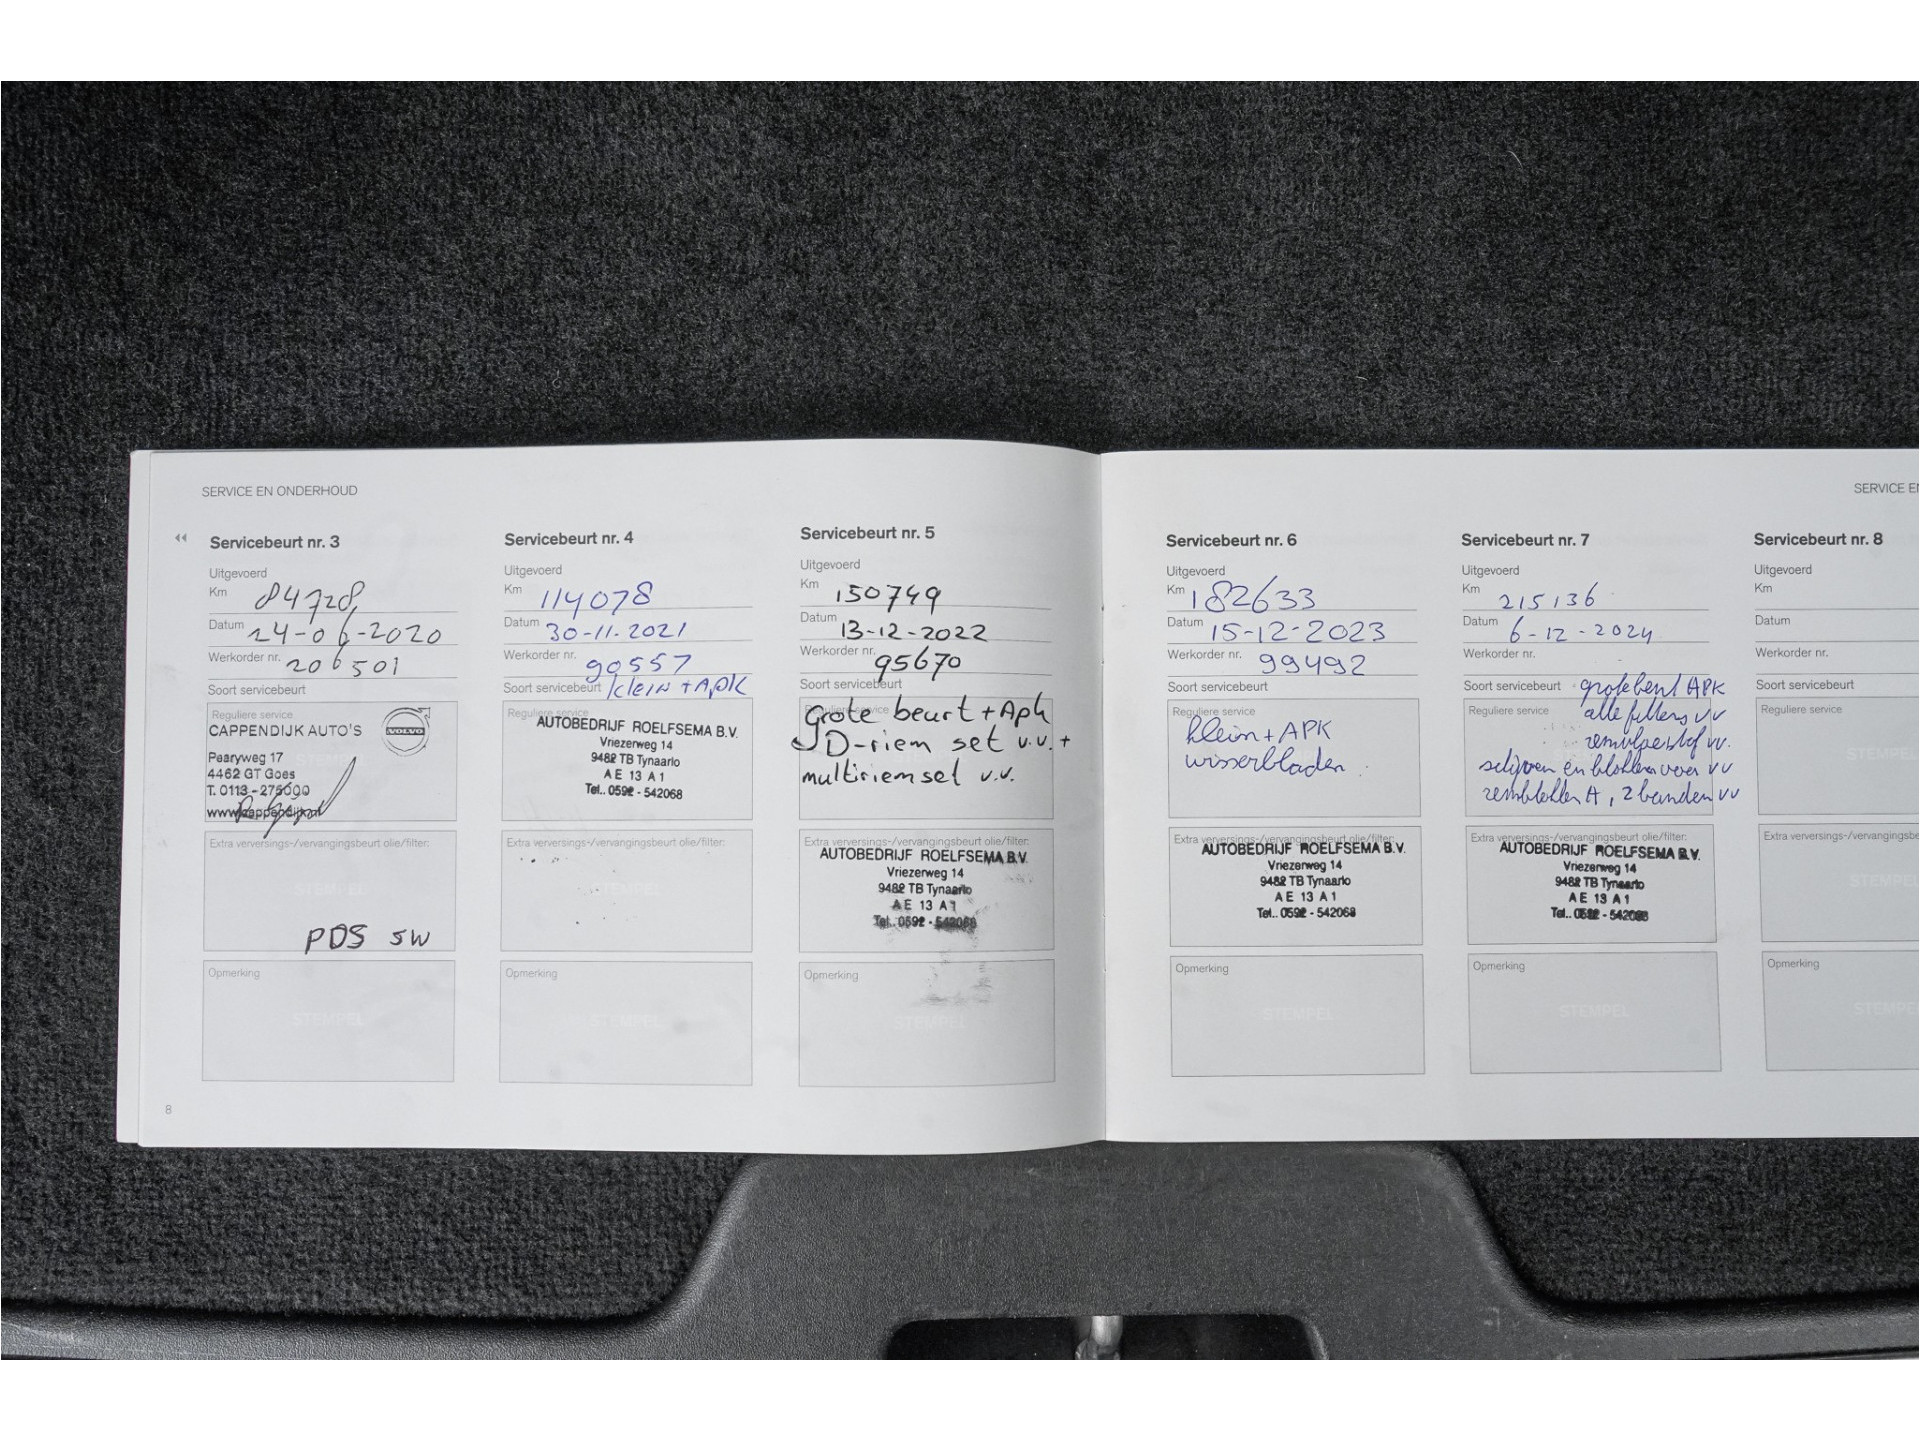 SERVICE EN ONDERHOUD
Servicebeurt nr. 3
Uitgevoerd
Km 84728
Datum 24-06-2020
Werkorder nr. 206501
Soort servicebeurt
Reguliere service
CAPPENDIJK AUTO'S
VOLVO
Pearyweg 17
4462 GT Goes
T. 0113 - 275000
www.cappendijk.nl
Extra verversings-/vervangingsbeurt olie/filter:
STEMPEL
PDS SW
Opmerking
STEMPEL
8
Servicebeurt nr. 4
Uitgevoerd
Km 114078
Datum 30-11-2021
Werkorder nr. 90557
Soort servicebeurt klein + APK
Reguliere service
AUTOBEDRIJF ROELFSEMA B.V.
Vriezerweg 14
9482 TB Tynaarlo
AE 13 A1
Tel.. 0592 - 542068
Extra verversings-/vervangingsbeurt olie/filter:
STEMPEL
Opmerking
STEMPEL
Servicebeurt nr. 5
Uitgevoerd
Km 150749
Datum 13-12-2022
Werkorder nr. 95670
Soort servicebeurt
Reguliere service
Grote beurt + Apk
D-riem set v.v. +
multiriemset v.v.
Extra verversings-/vervangingsbeurt olie/filter:
AUTOBEDRIJF ROELFSEMA B.V.
Vriezerweg 14
9482 TB Tynaarlo
AE 13 A1
Tel.. 0592 - 542068
Opmerking
STEMPEL
Servicebeurt nr. 6
Uitgevoerd
Km 182633
Datum 15-12-2023
Werkorder nr. 99492
Soort servicebeurt
Reguliere service
klein + APK
wisserbladen
Extra verversings-/vervangingsbeurt olie/filter:
AUTOBEDRIJF ROELFSEMA B.V.
Vriezerweg 14
9482 TB Tynaarlo
AE 13 A1
Tel.. 0592 - 542068
Opmerking
STEMPEL
SERVICE EN
Servicebeurt nr. 7
Uitgevoerd
Km 215136
Datum 6-12-2024
Werkorder nr.
Soort servicebeurt grotebeurt APK
Reguliere service alle filters vv
remvloeistof vv.
schijven en blokken voor vv
remblokken A, 2 banden vv
Extra verversings-/vervangingsbeurt olie/filter:
AUTOBEDRIJF ROELFSEMA B.V.
Vriezerweg 14
9482 TB Tynaarlo
AE 13 A1
Tel.. 0592 - 542068
Opmerking
STEMPEL
Servicebeurt nr. 8
Uitgevoerd
Km
Datum
Werkorder nr.
Soort servicebeurt
Reguliere service
STEMPEL
Extra verversings-/vervangingsbeurt
STEMPEL
Opmerking
STEMPEL